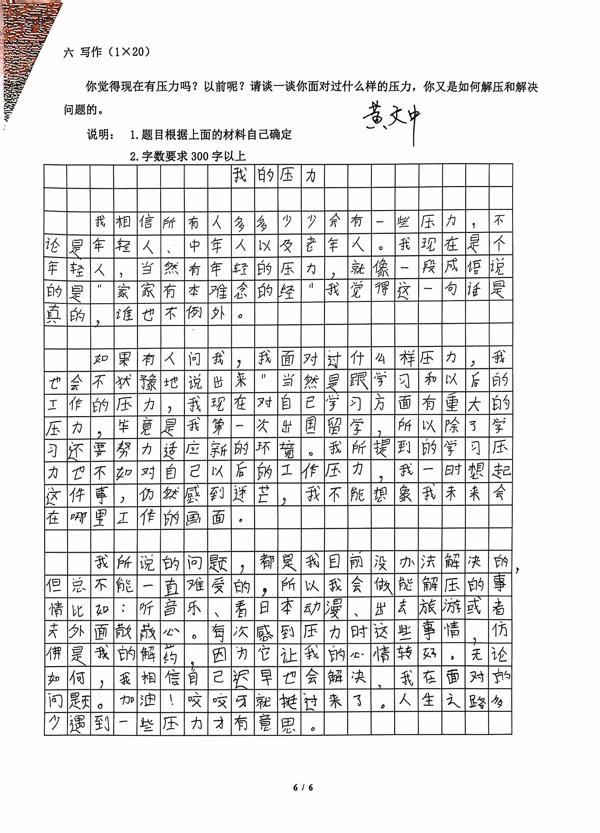 六 写作（1×20）
你觉得现在有压力吗？以前呢？请谈一谈你面对过什么样的压力，你又是如何解压和解决
问题的。
黄文中
说明： 1.题目根据上面的材料自己确定
2.字数要求 300 字以上
我的压力
我相信所有人多多少少会有一些压力，不
论是年轻人、中年人以及老年人。我现在是个
年轻人，当然有年轻的压力，就像一段成语说
的是"家家有本难念的经"我觉得这一句话是
真的，谁也不例外。
如果有人问我，我面对过什么样压力，我
也会不犹豫地说出来"当然是跟学习和以后的
工作的压力，我现在对自己学习方面有重大的
压力，毕竟是我第一次出国留学，所以除了学
习还要努力适应新的环境。我所提到的学习压
力也不如对自己以后的工作压力，我一时想起
这件事，仍然感到迷芒，我不能想象我未来会
在哪里工作的国面。
我所说的问题，都是我目前没办法解决的，
但总不能一直难受的，所以我会做能解压的事
情比如：听音乐、看日本动漫、出去旅游或者
去外面散散心。每次感到压力时这些事情，仿
佛是我的解药，因为它让我的心情转好。无论
如何，我相信自己迟早也会解决，我在面对的
问题。加油！咬咬牙就挺过来了。人生之路多
少遇到一些压力才有意思。
6 / 6